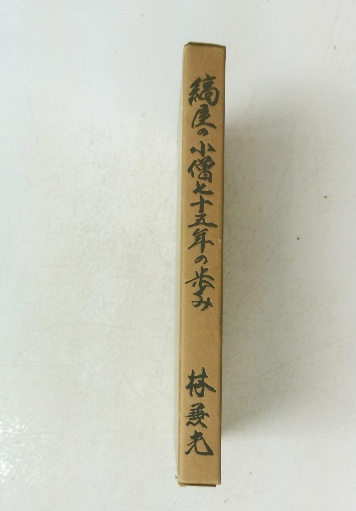 縞屋の小僧七十五年の歩み
林兼光